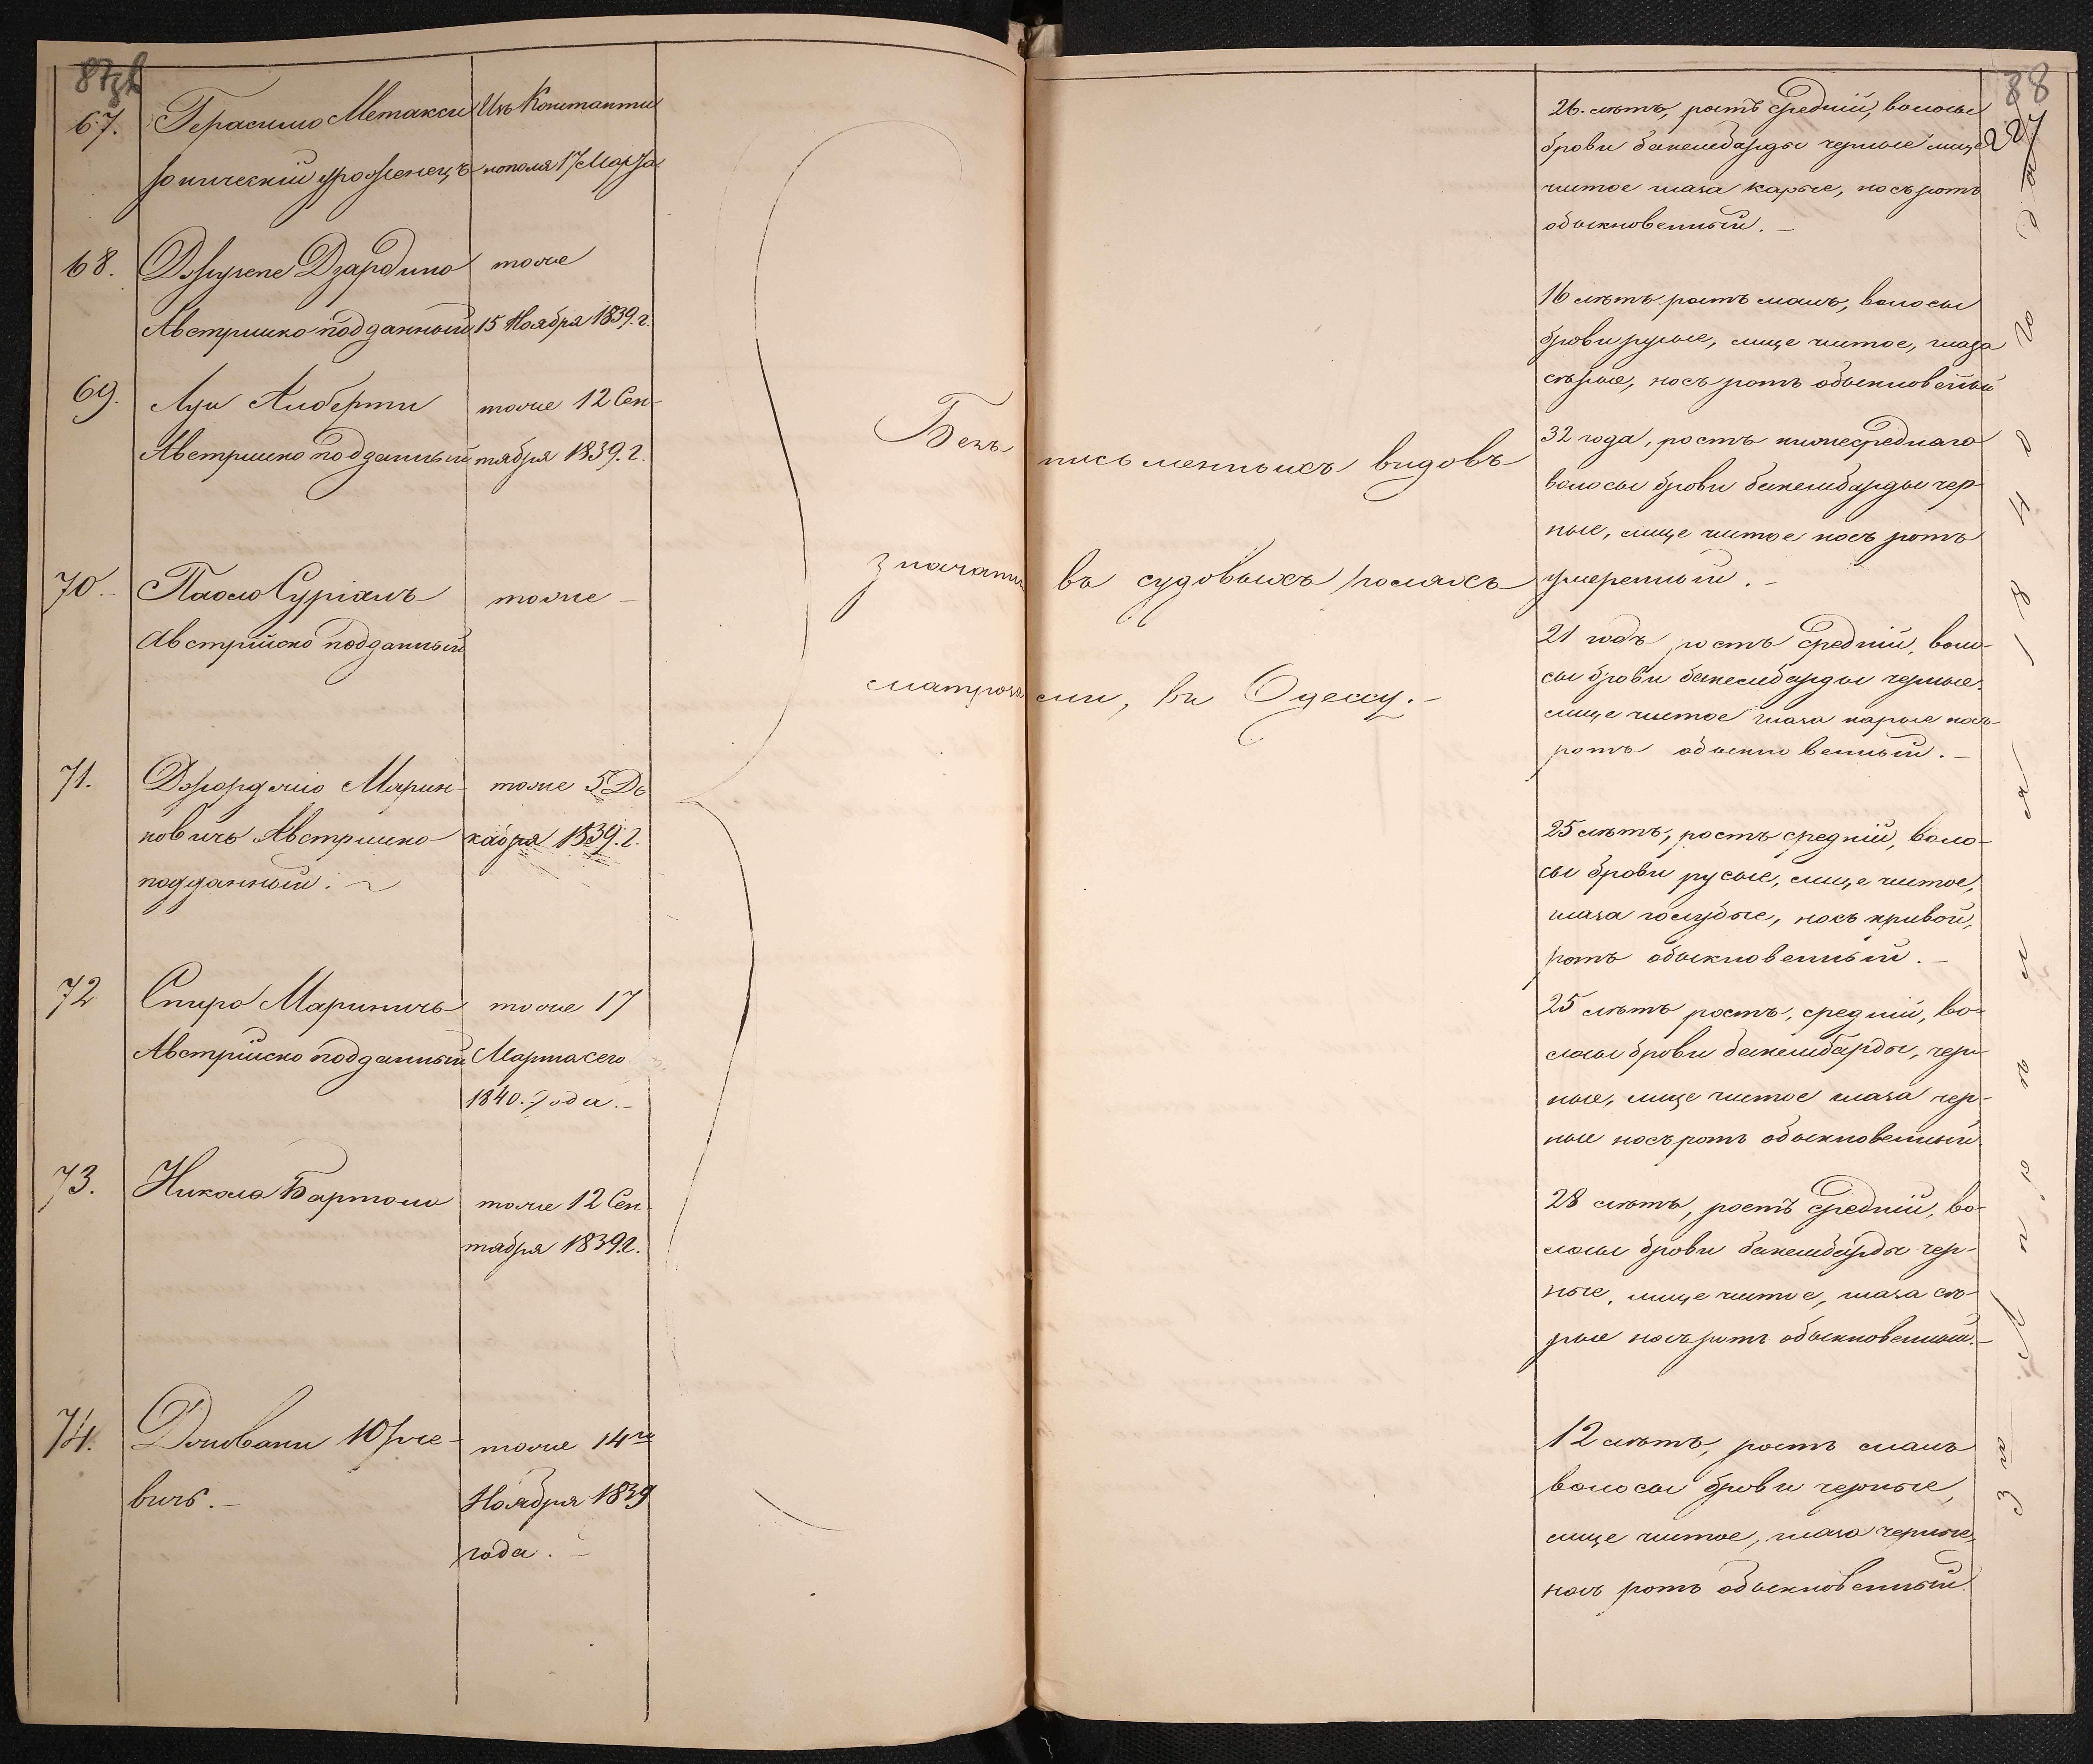 67.
Герасимо Метаксси
Іоническій уроженецъ
Изъ Константи
нополя 17 Марта
68.
Джузепе Дзардино
Австрійско подданный
тоже
15 Ноября 1839. г.
69.
Луи Алберти
Австрійско подданный
тоже 12 Сен-
тября 1839. г.
70.
Паоло Суріанъ
Австрійско подданный
тоже
71.
Марин-
ковичъ Австрійско
подданный.
тоже 5 Де
кабря 1839. г.
72
Спиро Мариничъ
Австрійско подданный
тоже 17
Марта сего
1840. года.
73.
Никола Бартоло
тоже 12 Сен-
тября 1839 г.
74.
Джовани
вичъ.
тоже 14го
Ноября 1839
года.
Безъ письменныхъ видовъ
значатся въ судовыхъ роляхъ
матрозами, въ Одессу.
88
227
26. лѣтъ, ростъ средній, волосы
брови бакембарды черные лице
чистое глаза карые, носъ ротъ
обыкновенный.
16 лѣтъ ростъ малъ, волосы
брови русые, лице чистое, глаза
сѣрые, носъ ротъ обыкновенный
32 года, ростъ нижесредняго
волосы брови бакембарды чер
ные, лице чистое носъ ротъ
умеренный.
21 годъ ростъ средній, воло-
сы брови бакембарды черные.
лице чистое глаза карые носъ
ротъ обыкновенный.
25 лѣтъ, ростъ средній, воло-
сы брови русые, лице чистое,
глаза голубые, носъ кривой,
ротъ обыкновенный.
25 лѣтъ ростъ, средній, во-
лосы брови бакембарды, чер-
ные, лице чистое глаза чер-
ные носъ ротъ обыкновенный
28 лѣтъ, ростъ средній, во-
лосы брови бакембарды чер-
ные, лице чистое, глаза сѣ-
рые носъ ротъ обыкновенный.
12 лѣтъ, ростъ малъ
волосы брови черные,
лице чистое, глаза черные,
носъ ротъ обыкновенный.
1840 года